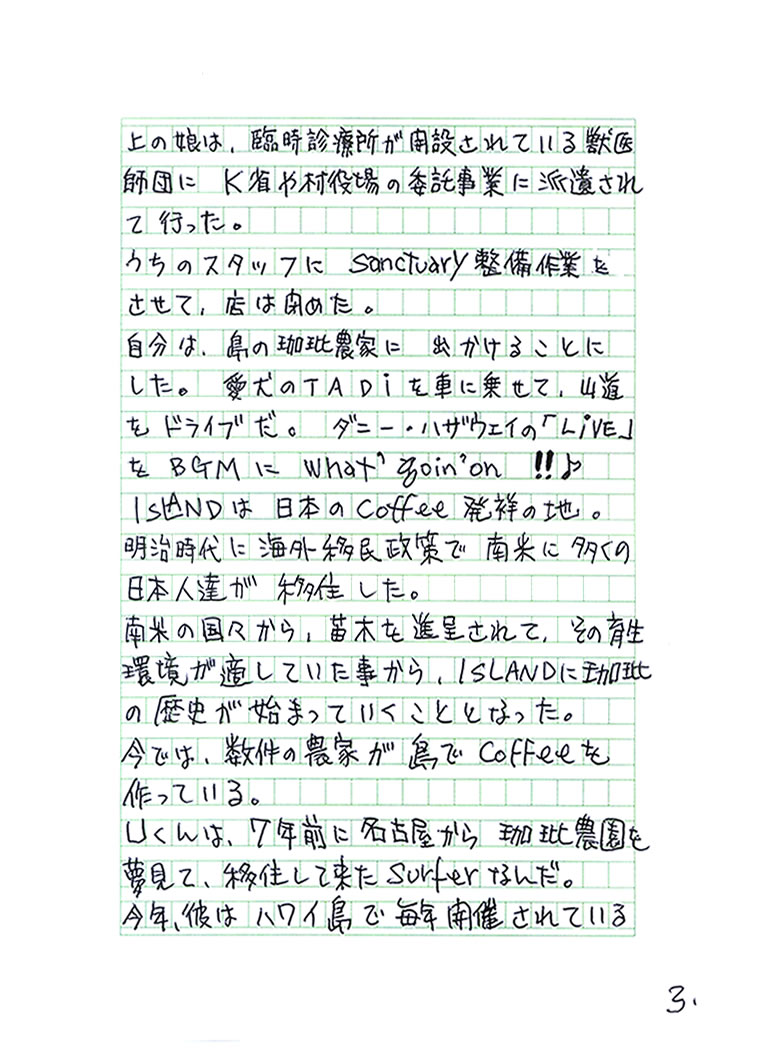 上の娘は、臨時診療所が開設されている獣医
師団に K省や村役場の委託事業に派遣され
て行った。
うちのスタッフに sanctuary整備作業を
させて、店は閉めた。
自分は、島の珈琲農家に 出かけることに
した。 愛犬のTADiを車に乗せて、山道
を ドライブだ。 ダニー・ハザウェイの「LiVE」
を BGMに what' goin'on !!♪
ISLANDは 日本のcoffee発祥の地。
明治時代に海外移民政策で 南米に多くの
日本人達が 移住した。
南米の国々から、苗木を進呈されて、その育生
環境が適していた事から、ISLANDに珈琲
の歴史が始まっていくこととなった。
今では、数件の農家が島でcoffeeを
作っている。
Uくんは、7年前に名古屋から 珈琲農園を
夢見て、移住して来たsurferなんだ。
今年、彼は ハワイ島で毎年開催されている
3.